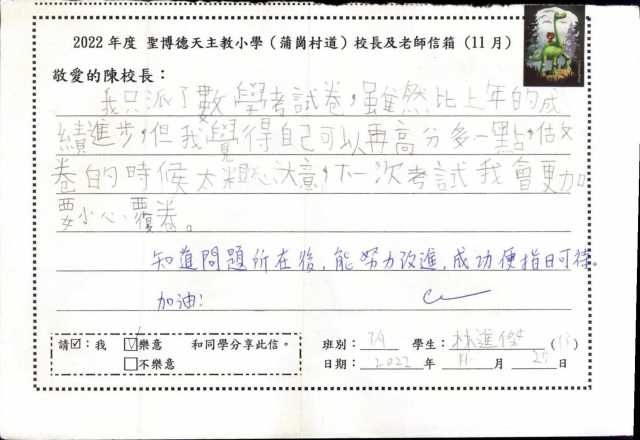 2022 年度 聖博德天主教小學（蒲崗村道）校長及老師信箱（11 月）
敬愛的陳校長：
我只派了數學考試卷，雖然比上年的成
績進步，但我覺得自己可以再高分多一點，做
卷的時候太粗心大意，下一次考試我會更加
要小心覆卷。
知道問題所在後，能努力改進，成功便指日可待。
加油！
請☑：我 ☑樂意 和同學分享此信。
□不樂意
班別： 學生：林進傑
日期：2022 年 11 月 25 日